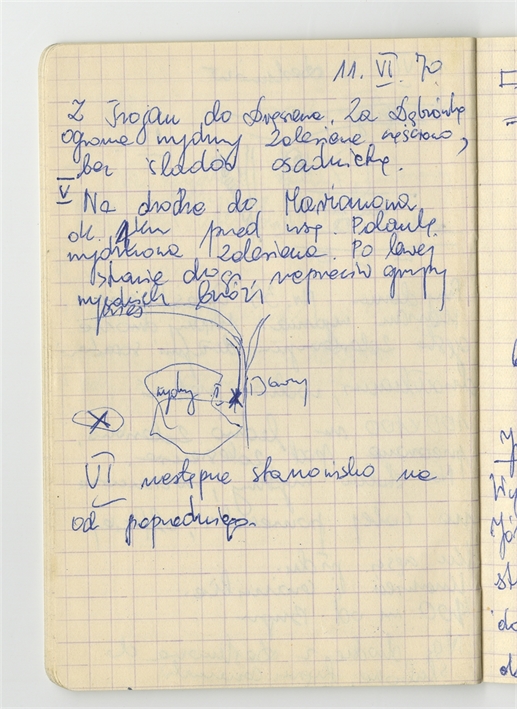 11. VI. 70
Z Trojan do Dręszewa. Za Dąbrówką
ogromne wydmy zalesione częściowo,
bez śladów osadnictwa.
V Na drodze do Marianowa
ok. 1 km przed wsią. Polanka
wydmowa zalesiona. Po lewej
stronie drogi, naprzeciw grupy
wysokich brzóz
wydmy
VI następne stanowisko na
od poprzedniego.